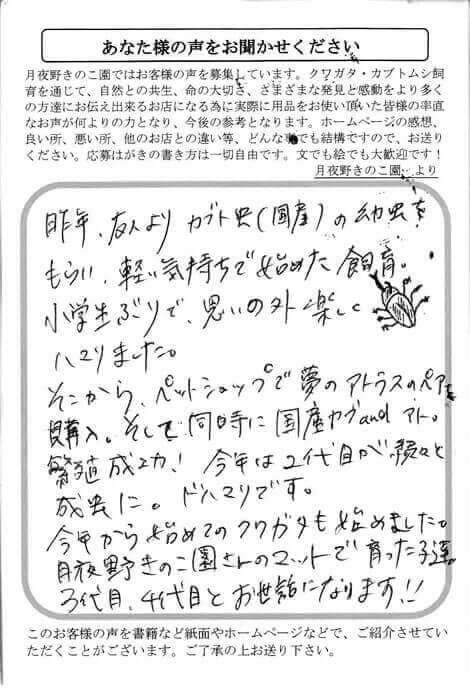 あなた様の声をお聞かせください
月夜野きのこ園ではお客様の声を募集しています。クワガタ・カブトムシ飼
育を通じて、自然との共生、命の大切さ、さまざまな発見と感動をより多く
の方達にお伝え出来るお店になる為に実際に用品をお使い頂いた皆様の率直
なお声が何よりの力となり、今後の参考となります。ホームページの感想、
良い所、悪い所、他のお店との違い等、どんな事でも結構ですので、お送り
ください。応募はがきの書き方は一切自由です。文でも絵でも大歓迎です！
月夜野きのこ園 より
昨年、友人より カブト虫(国産)の幼虫を
もらい、軽い気持ちで始めた飼育。
小学生ぶりで、思いの外 楽しく
ハマりました。
そこから、ペットショップで夢のアトラスのペアを
購入。そして同時に国産カブandアト。
繁殖成功！ 今年は2代目が続々と
成虫に。ドハマりです。
今年から始めてのクワガタも始めました。
月夜野きのこ園さんのマットで育った子達。
3代目、4代目とお世話になります!!
このお客様の声を書籍など紙面やホームページなどで、ご紹介させてい
ただくことがございます。ご了承の上お送り下さい。